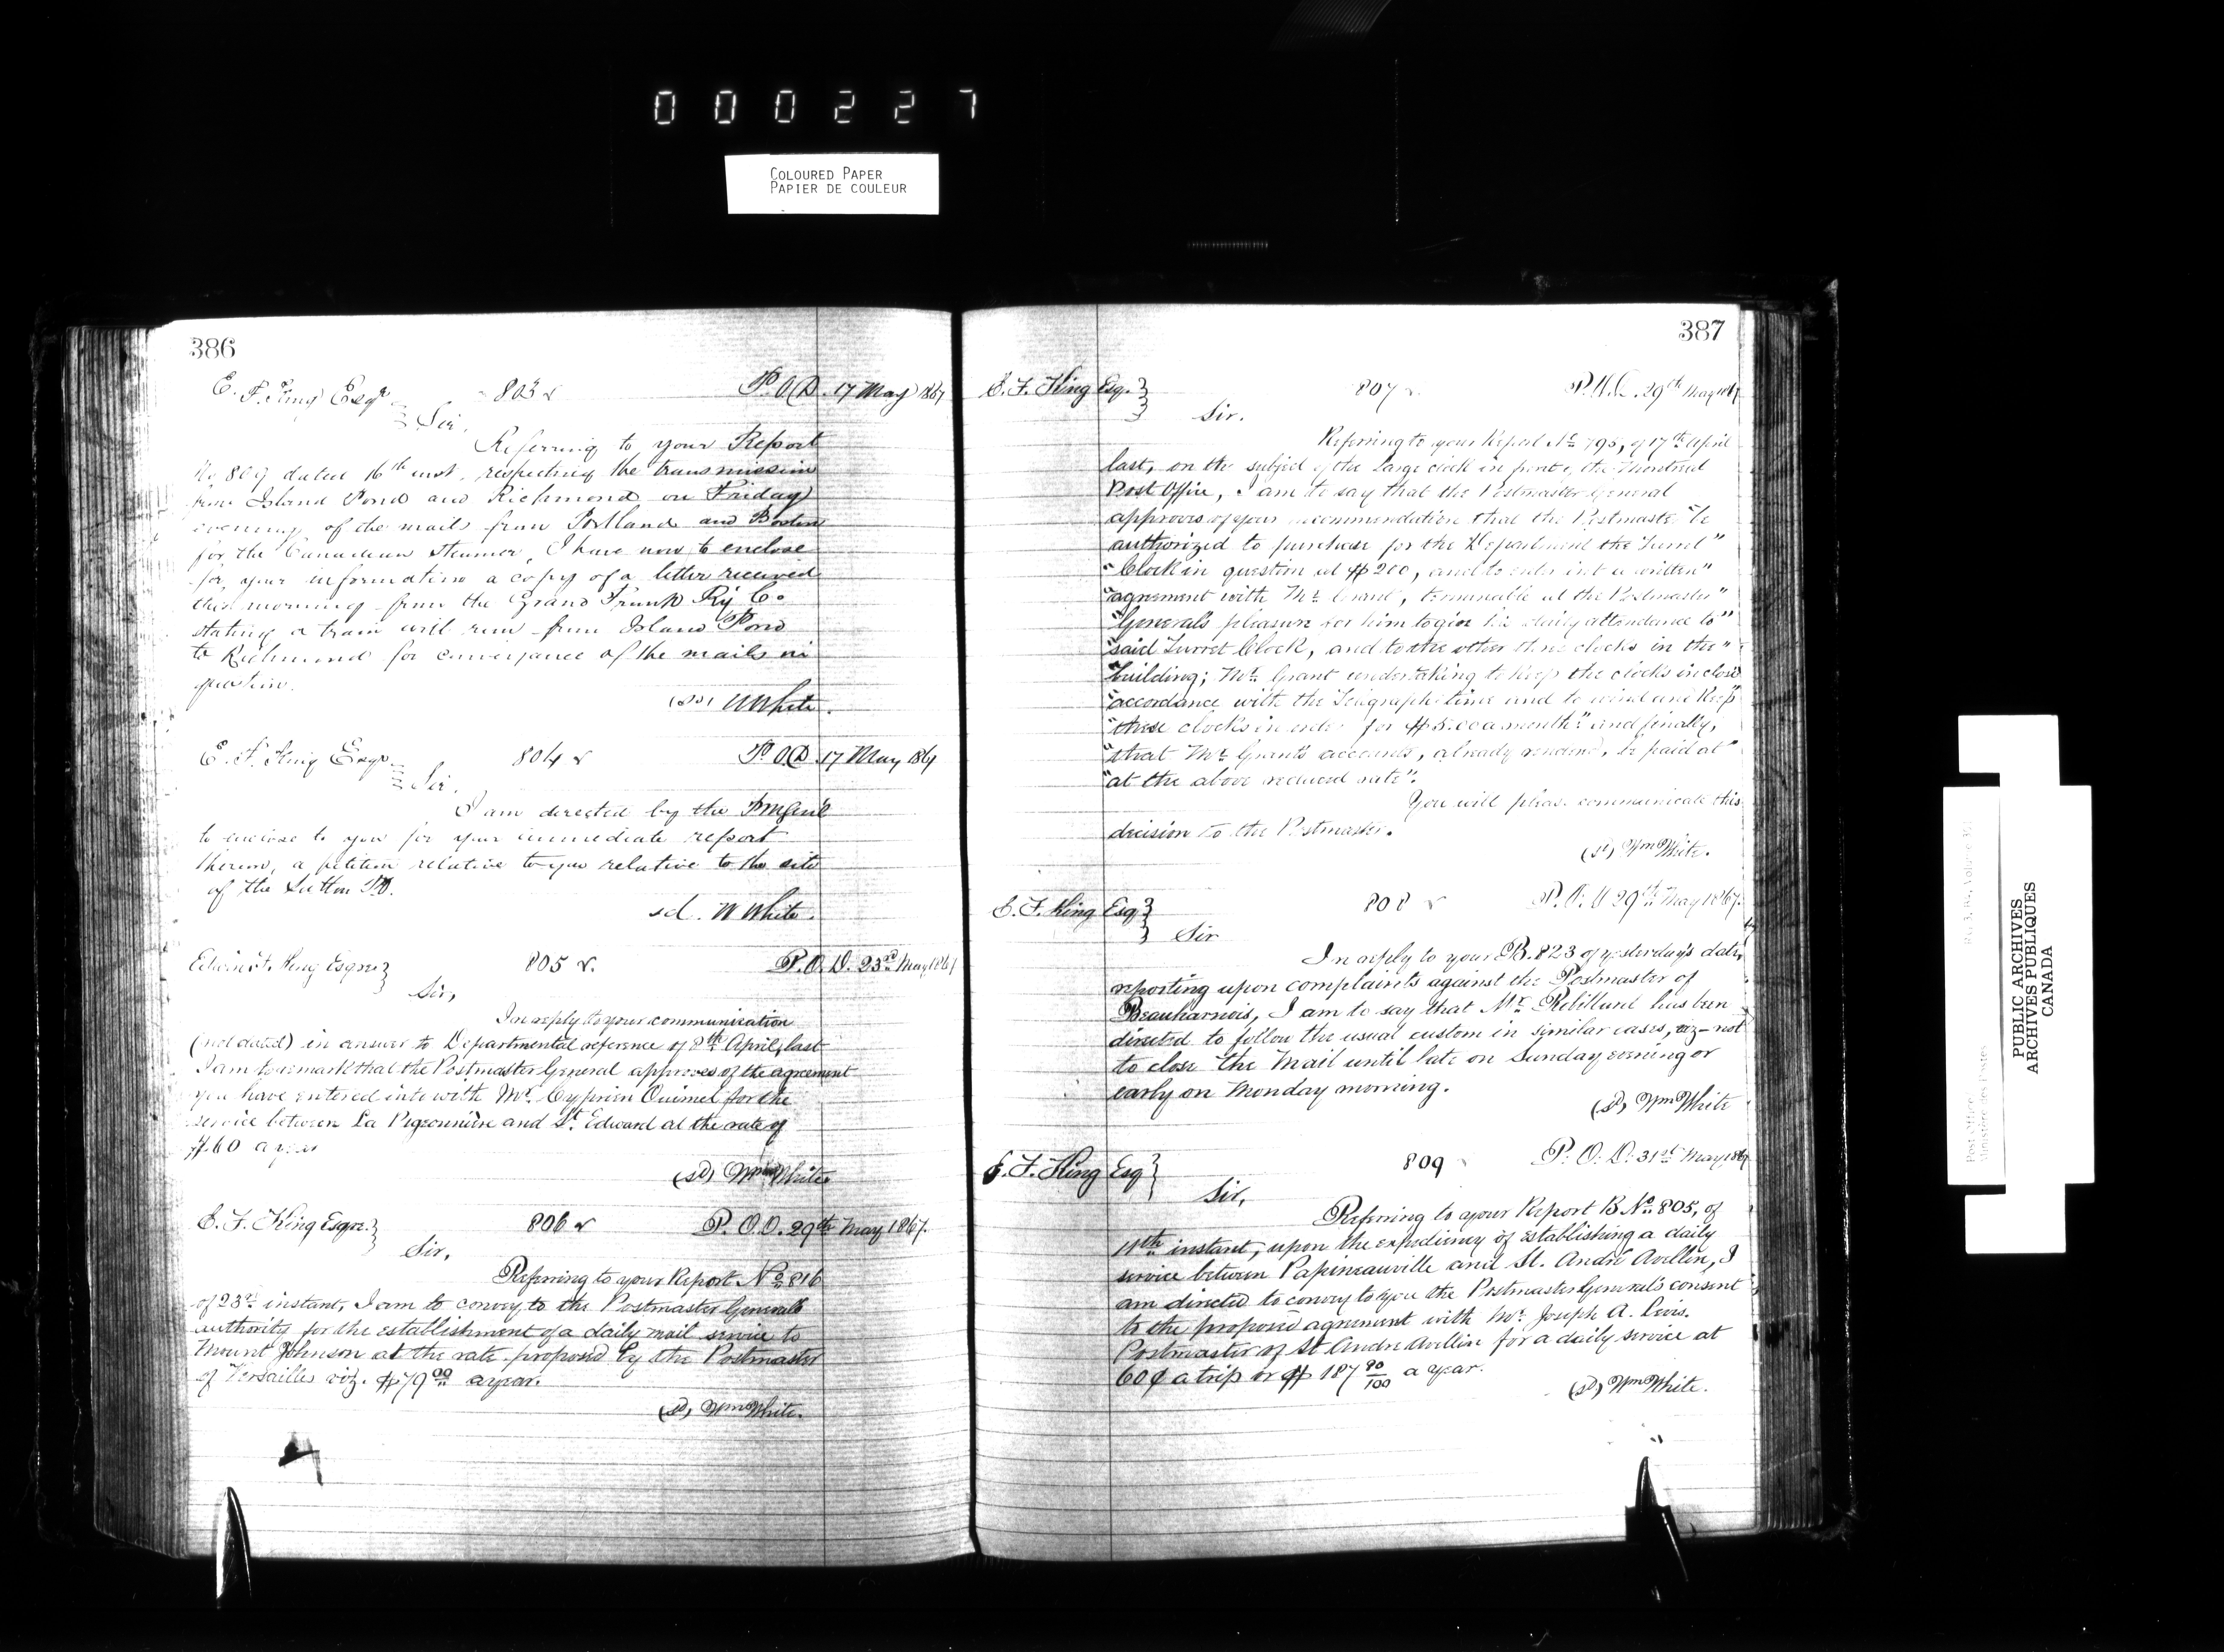 000227
COLOURED PAPER
PAPIER DE COULEUR
386
E. F. King Esqr 803 P.O.D. 17 May 1867
Sir,
Referring to your Report
No 809 dated 16th inst. respecting the transmission
from Island Pond and Richmond on Friday
evening of the mails from Portland and Boston
for the Canadian Steamer, I have now to enclose
for your information a copy of a letter received
this morning from the Grand Trunk Ry Co.
stating a train will run from Island Pond
to Richmond for conveyance of the mails in
question.
(sd) W White.
E. F. King Esqr 804 P.O.D. 17 May 1867
Sir,
I am directed by the PMGenl
to enclose to you for your immediate report
thereon, a petition relative to you relative to the site
of the Sutton P.O.
sd. W White.
Edwin F. King Esqre 805 P.O.D. 23rd May 1867
Sir,
In reply to your communication
(not dated) in answer to Departmental reference of 8th April, last
I am to remark that the Postmaster General approves of the agreement
you have entered into with Mr. Cyprien Ouimet for the
service between La Pigeonnière and St. Edward at the rate of
$60 a year
(sd) Wm White
E. F. King Esqre. 806 P.O.D. 29th May 1867.
Sir,
Referring to your Report No 816
of 23rd instant, I am to convey to the Postmaster Generals
authority for the establishment of a daily mail service to
Mount Johnson at the rate proposed by the Postmaster
of Versailles viz. $79.00 a year.
(sd) Wm White.
387
E. F. King Esq. 807 29th May 1867
Sir.
Referring to your Report No 795, of 17th April
last, on the subject of the large clock in front of the Montreal
Post Office, I am to say that the Postmaster General
approves of your recommendation that the Postmaster "be
authorized to purchase for the Department the Turret"
"Clock in question at $200, and to enter into a written"
"agreement with Mr. Grant, terminable at the Postmaster"
"General's pleasure for him to give his daily attendance to"
"said Turret Clock, and to the other three clocks in the"
"building; Mr. Grant undertaking to keep the clocks in close
"accordance with the Telegraph time and to wind and keep"
"these clocks in order for $5.00 a month" and finally,
"that Mr. Grant's accounts, already rendered, be paid at"
"at the above reduced rate".
You will please communicate this
decision to the Postmaster.
(sd) Wm White.
E. F. King Esq 808 P.O.D 29th May 1867.
Sir
In reply to your B.823 of yesterday's date,
reporting upon complaints against the Postmaster of
Beauharnois, I am to say that Mr. has been
directed to follow the usual custom in similar cases, viz - not
to close the Mail until late on Sunday evening or
early on Monday morning.
(sd) Wm White
E. F. King Esq 809 P.O.D. 31st May 1867
Sir,
Referring to your Report B.No. 805, of
11th instant, upon the expediency of establishing a daily
service between Papineauville and St. André Avellin, I
am directed to convey to you the Postmaster General's consent
to the proposed agreement with Mr. Joseph A. Levis.
Postmaster of St André Avellin for a daily service at
60¢ a trip or $187 90/100 a year.
(sd) Wm White.
PUBLIC ARCHIVES
ARCHIVES PUBLIQUES
CANADA